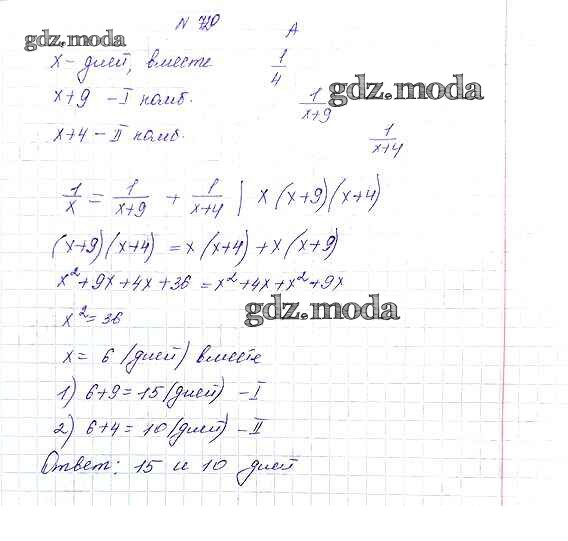 N 720
A
gdz.moda
x - дней, вместе 1/4
gdz.moda
x+9 - I комб. 1/(x+9)
x+4 - II комб. 1/(x+4)
1/x = 1/(x+9) + 1/(x+4) | x(x+9)(x+4)
(x+9)(x+4) = x(x+4) + x(x+9)
x²+9x+4x+36 = x²+4x+x²+9x
gdz.moda
x²=36
x = 6 (дней) вместе
1) 6+9=15(дней) - I
2) 6+4=10(дней) - II
Ответ: 15 и 10 дней